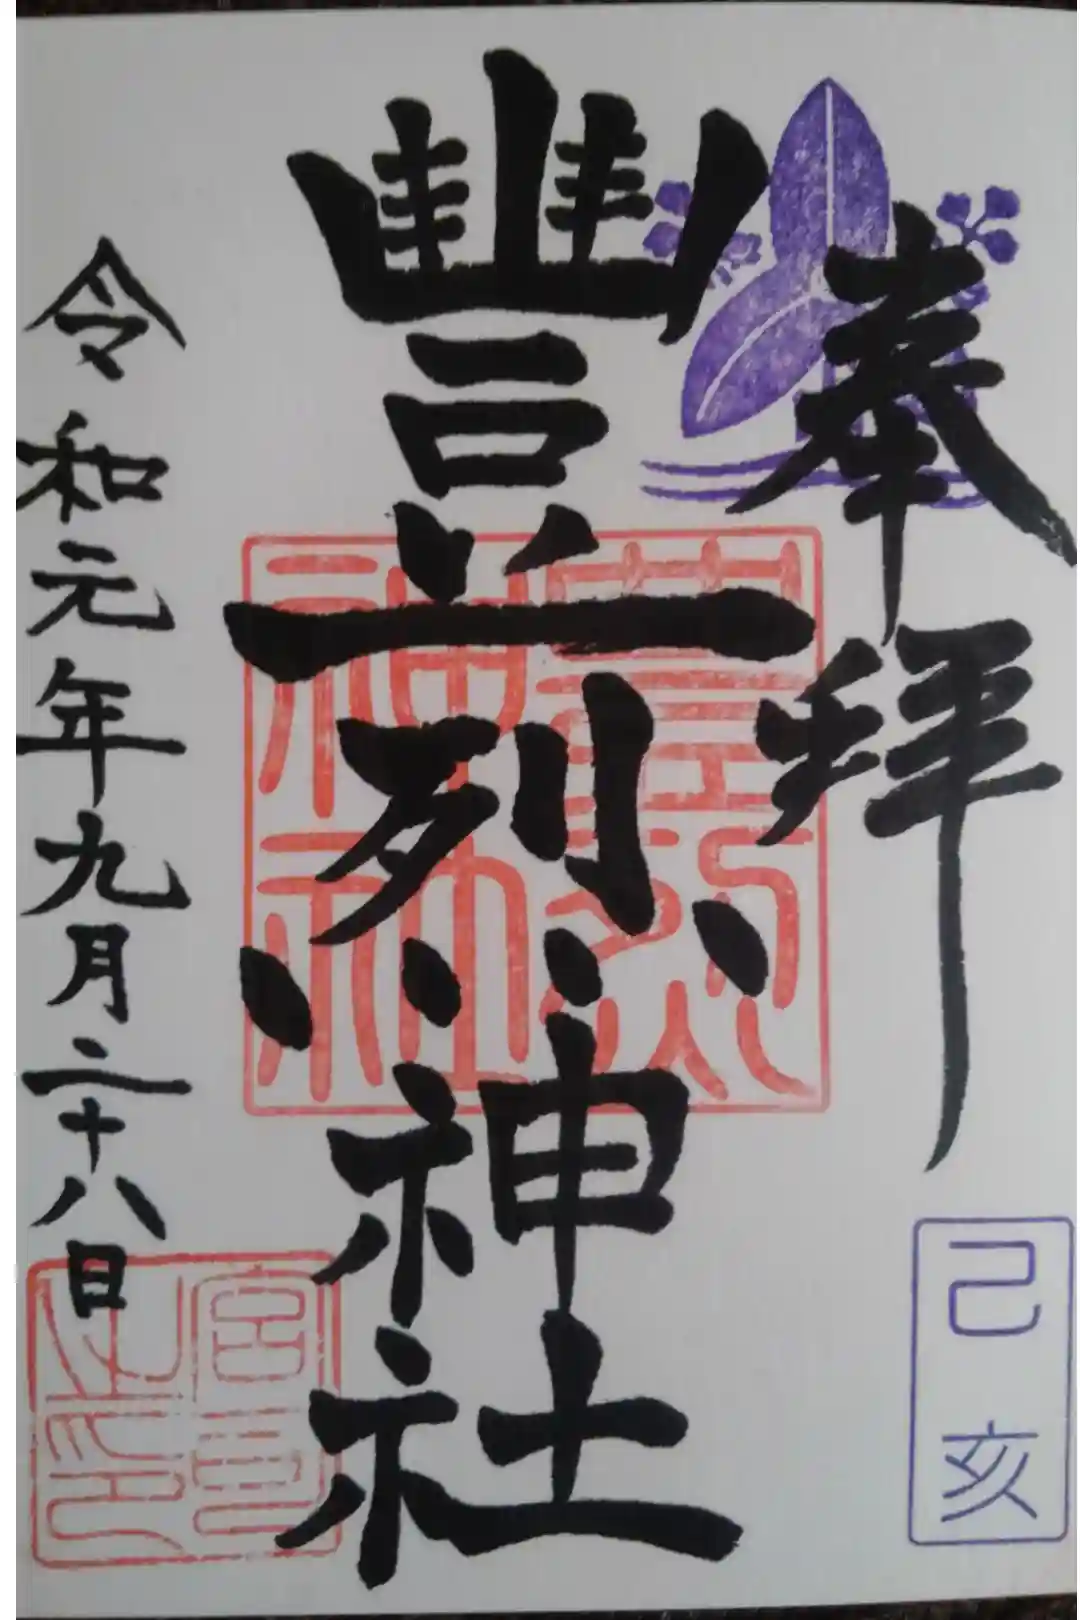 奉拝
己亥
豐烈神社
豐烈神社
令和元年九月二十八日
宮司之印